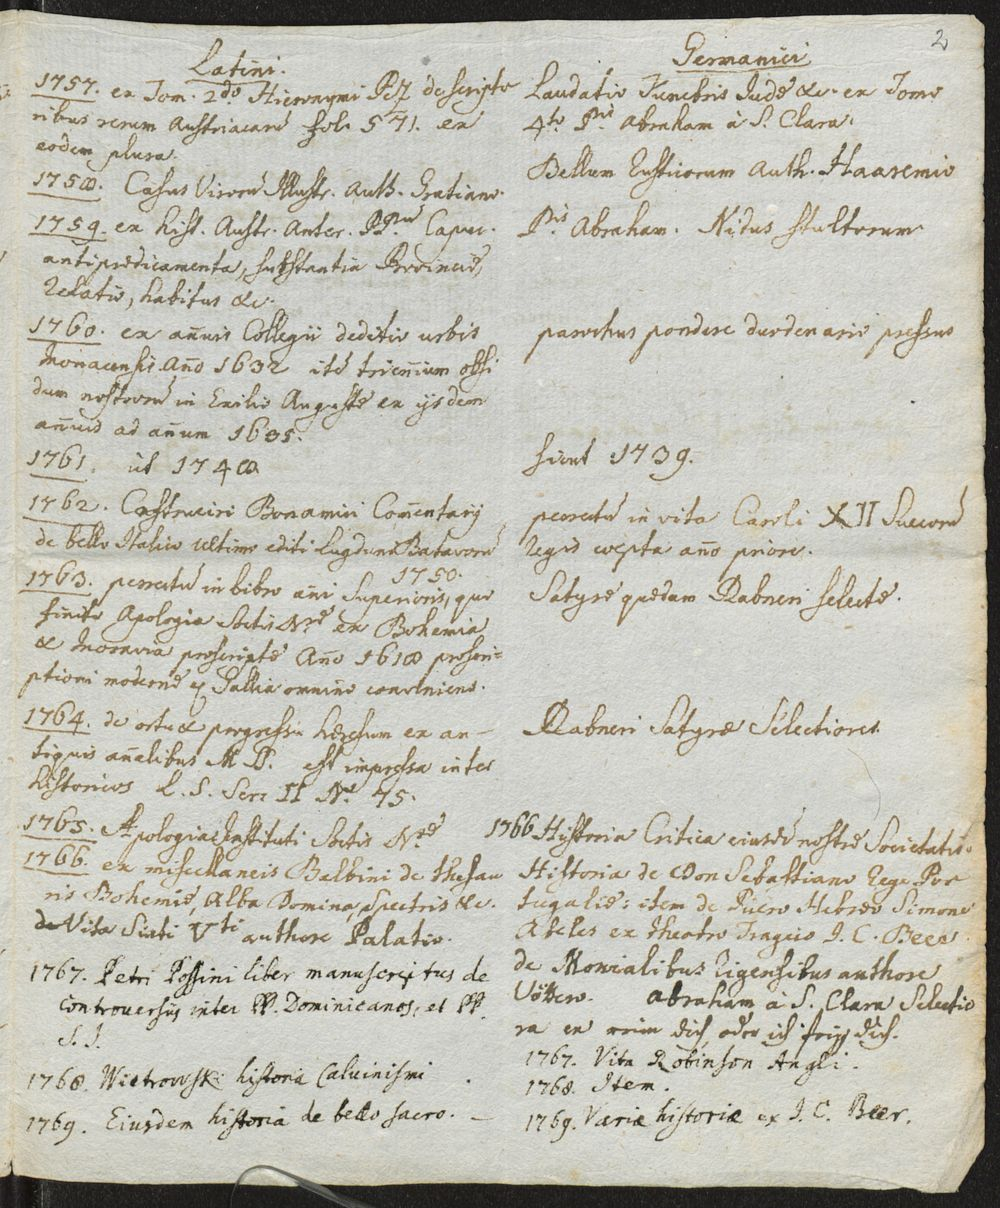 2
Latini.
1757. ex Tom. 2do Hieronymi Pez de scripto
ribus rerum Austriacarū fol. 571. ex
eodem plura.
1758. Casus Virorū Illustr. Auth. Gratiano.
1759. ex hist. Austr. Anter. PP.um Capuc.
antipredicamenta, substantia Provincię,
Relatio, habitus &c.
1760. ex añuis Collegii deditio urbis
Monacensis Año 1632 itē trieñium obsi
dum nostrorū in Exilio Augustę ex ijsdem
añuis ad añum 1635.
1761. ut 1748
1762. Castruccii Bonamici Com̄entarij
de bello Italico ultimo editi Lugduni Batavorū
1750.
1763. perrectū in libro añi Superioris, quo
finito Apologia Sctis Nrę ex Bohemia
& Moravia proscriptę Año 1618 proscri=
ptioni modernę ex Gallia omnino conveniens.
1764. de ortu & progressu hęresum ex an-
tiquis añalibus M B. est impressa inter
historicos L. S. Serz II No 75.
1765. Apologia Instituti Sctis Nrę
1766. ex miscellaneis Balbini de thesau
ris Bohemię, Alba Domina, spectris &c.
de Vita Sixti Vti authore Palatio.
1767. Petri Possini liber manuscriptus de
controversijs inter PP. Dominicanos, et PP.
S. J.
1768. Wietrowski historia Calvinismi.
1769. Eiusdem historia de bello sacro. -
Germanici
Laudatio Funebris Judę &c. ex Tomo
4to Pris Abraham à S. Clara.
Bellum Rusticorum Auth. Haaremio
Pris Abraham. Nidus stultorum
parochus pondere duodenario pressus
sicut 1739.
perrectū in vita Caroli XII Suecorū
Regis cœpta año priore.
Satyrę quędam Rabneri selectę.
Rabneri Satyræ Selectiores.
1766 Historia Critica eiusdē nostrę Societatis.
Historia de Don Sebastiano Rege Por
tugalię: item de Puero Hebręo Simone
Abeles ex theatro Tragico J. C. Beer.
de Monialibus Rigensibus authore
Vöttero. Abraham à S. Clara Selectio
ra ex reim dich, oder ich friß dich.
1767. Vita Robinson Angli.
1768. Item.
1769. Variæ historiæ ex J. C. Beer.